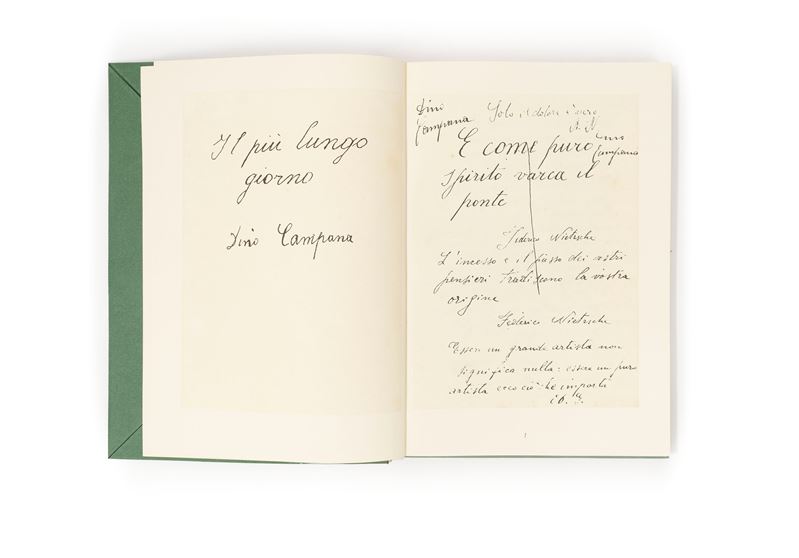 Il più lungo
giorno
Dino Campana
Dino
Campana
Solo il dolore è vero
E come puro
Dino
Campana
spirito varca il
ponte
Federico Nietzsche
L'incesso e il passo dei vostri
pensieri tradiscono la vostra
origine
Federico Nietzsche
Essere un grande artista non
significa nulla: essere un puro
artista ecco ciò che importi
1